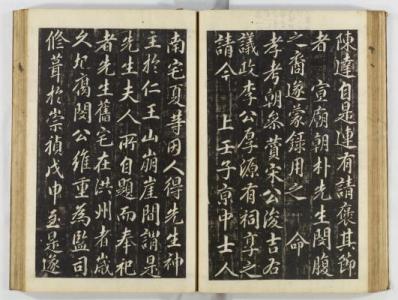 陳達自是連有請褒其節
者　宣廟朝朴先生閔腹
之裔遂蒙錄用之　命
孝考朝參贊宋公浚吉右
議政李公厚源有祠享之
請今　上壬子京中士人
南宅夏等因人得先生神
主於仁王山崩崖間謂是
先生夫人所自題而奉祀
者先生舊宅在洪州者歲
久圮腐閔公維重為監司
修葺於崇禎戊申至是遂